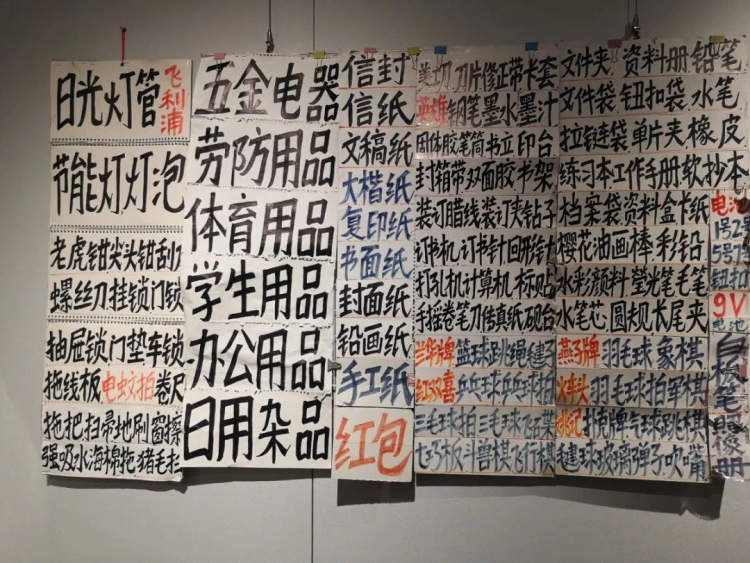 日光灯管 飞利浦
节能灯灯泡
老虎钳尖头钳刮刀
螺丝刀挂锁门锁
抽屉锁门垫车锁
拖线板电蚊拍卷尺
拖把扫帚地刷窗擦
强吸水海棉拖猪毛
五金电器
劳防用品
体育用品
学生用品
办公用品
日用杂品
信封
信纸
文稿纸
大楷纸
复印纸
书面纸
封面纸
铅画纸
手工纸
红包
美工刀刀片修正带卡套
英雄钢笔墨水墨汁
固体胶笔筒书立印台
封箱带双面胶书架
装订腊线装订夹钻子
订书机订书针回形针
打孔机计算机标贴
手摇卷笔刀传真纸砚台
兰华牌篮球跳绳毽
红双喜乒乓球乒乓拍
三毛球拍三毛球飞
七巧板斗兽棋飞行棋
文件夹资料册铅笔
文件袋钮扣袋水笔
拉链袋单片夹橡皮
练习本工作手册软抄本
档案袋资料盒卡纸
樱花油画棒彩铅
水彩颜料莹光笔毛笔
水笔芯圆规长尾夹
燕子牌羽毛球象棋
火车头羽毛球拍军棋
扑克牌气球跳棋
毽球玻璃弹子吹
电
1号2
5号7
钮扣
9V
电池
白板笔
照
册